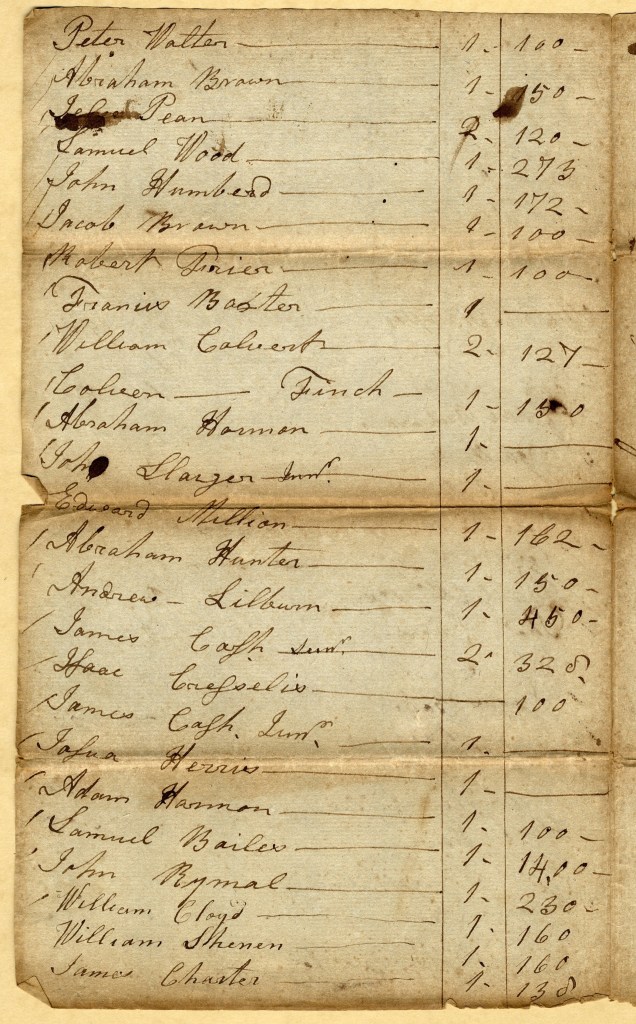 Peter Walter — 1- 100-
Abraham Brown 1- 150-
Pean — 2- 120-
Samuel Wood — 1- 273
John Humberd — 1- 172-
Jacob Brown — 1- 100-
Robert Frier — 1- 100-
Francis Baxter — 1 —
William Calvert — 2- 127-
Colven — Finch — 1- 150
Abraham Harmon — 1- —
John Slayer Junr. — 1- —
Edward Million — 1- 162-
Abraham Hunter — 1- 150-
Andrew - Lilburn — 1- 450-
James Cash Senr. — 2- 328
Isaac Cresselis — 100
James Cash Junr. — 1- —
Josua Herris — 1- —
Adam Harmon — 1- 100-
Samuel Bailes — 1- 1400-
John Rymal — 1- 230-
William Cloyd — 1- 160
William Shenen 1- 160
James Charter — 1- 138